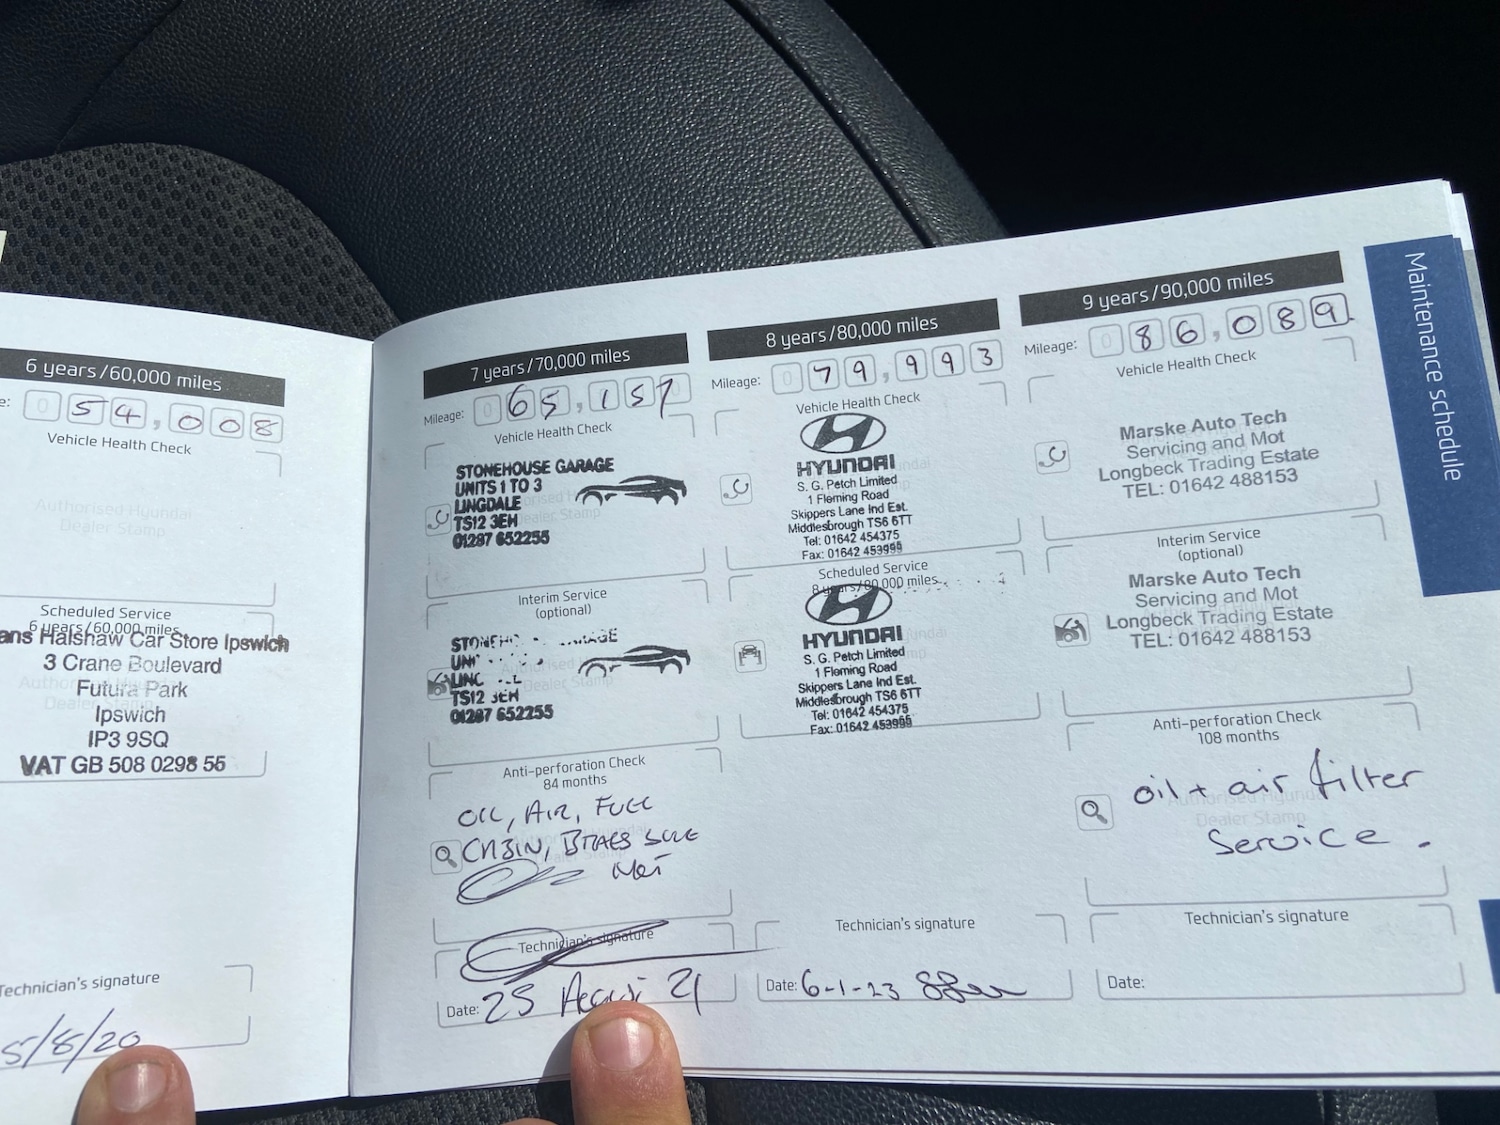 6 years/60,000 miles
e: 0 54,008
Vehicle Health Check
Authorised Hyundai
Dealer Stamp
Scheduled Service
6 years/60,000 miles
ans Halshaw Car Store Ipswich
3 Crane Boulevard
Futura Park
Ipswich
IP3 9SQ
VAT GB 508 0298 55
Technician's signature
5/8/20
7 years/70,000 miles
Mileage: 0 65,157
Vehicle Health Check
STONEHOUSE GARAGE
UNITS 1 TO 3
LINGDALE
TS12 3EH
01287 652255
Interim Service
(optional)
TS12 3EH
01287 652255
Anti-perforation Check
84 months
OIL, AIR, FUEL
CABIN,
Technician's signature
Date: 25 August 21
8 years/80,000 miles
Mileage: 0 79,993
Vehicle Health Check
HYUNDAI
S. G. Petch Limited
1 Fleming Road
Skippers Lane Ind Est.
Middlesbrough TS6 6TT
Tel: 01642 454375
Fax: 01642 453995
Scheduled Service
8 years/80,000 miles
HYUNDAI
S. G. Petch Limited
1 Fleming Road
Skippers Lane Ind Est.
Middlesbrough TS6 6TT
Tel: 01642 454375
Fax: 01642 453995
Technician's signature
Date: 6-1-23
9 years/90,000 miles
Mileage: 0 86,089
Vehicle Health Check
Marske Auto Tech
Servicing and Mot
Longbeck Trading Estate
TEL: 01642 488153
Interim Service
(optional)
Marske Auto Tech
Servicing and Mot
Longbeck Trading Estate
TEL: 01642 488153
Anti-perforation Check
108 months
oil + air filter
Service.
Technician's signature
Date:
Maintenance schedule